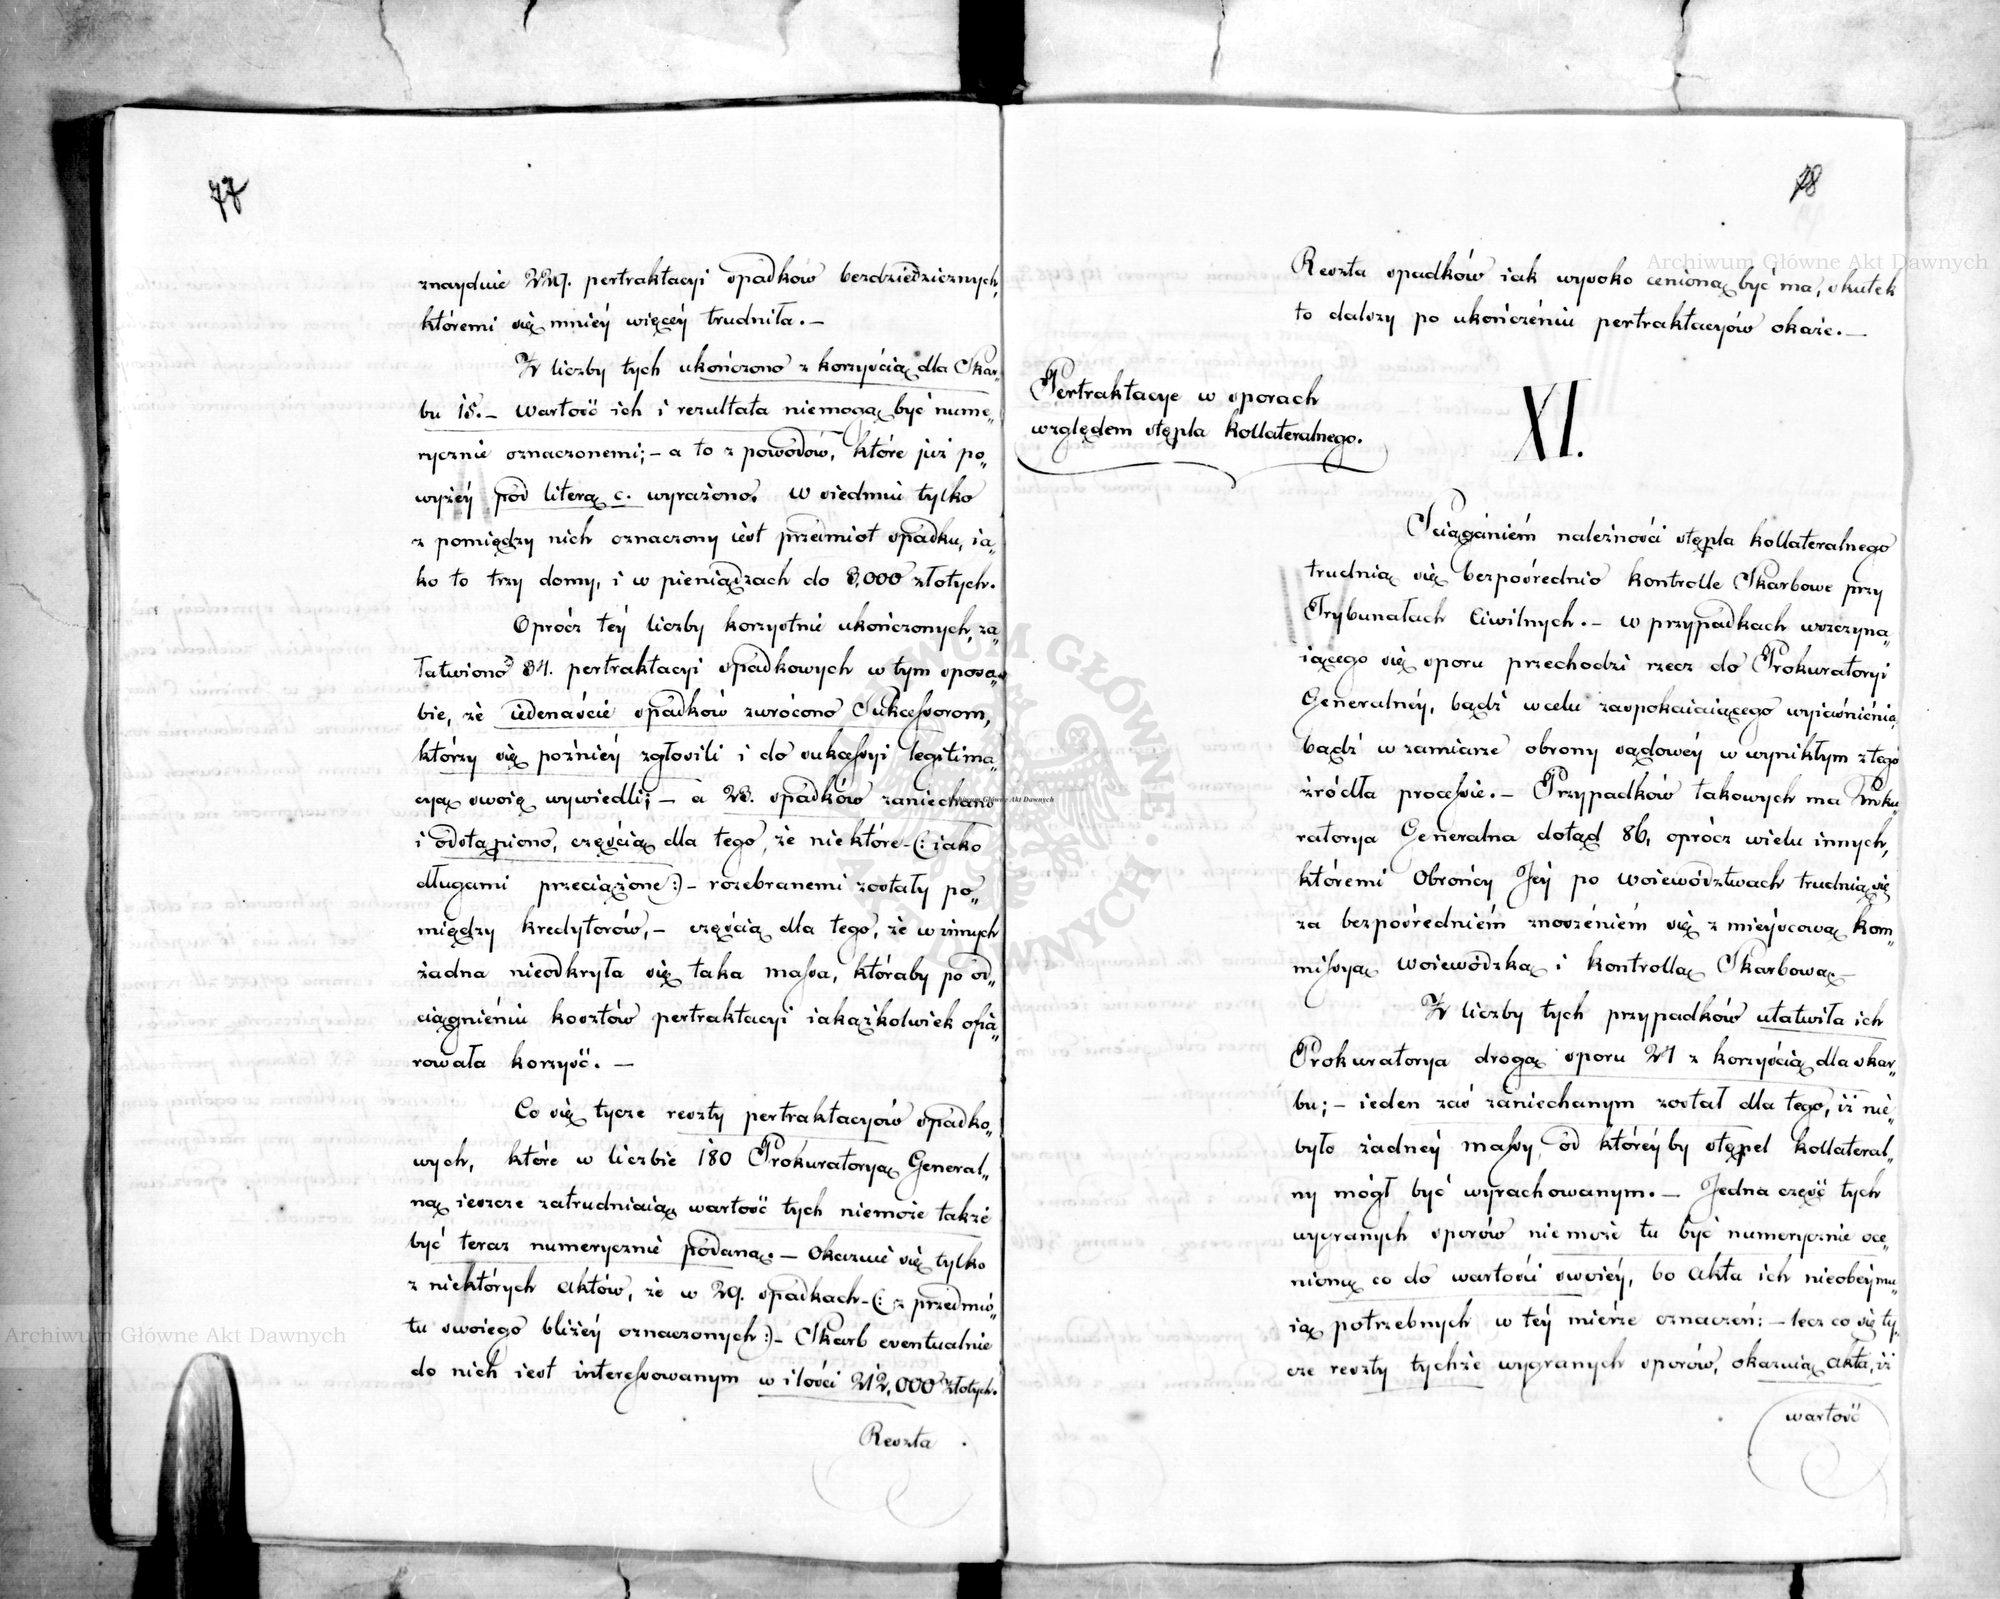 77
znayduie 229. pertraktacyi spadków bezdziedzicznych,
któremi się mniéy więcéy trudniła. —
Z liczby tych ukończono z korzyścią dla Skar„
bu 15. — Wartość ich i rezultata niemogą być nume„
rycznie oznaczonemi; — a to z powodów, które już po„
wyżéy pod literą c. wyrażono. W siedmiu tylko
z pomiędzy nich oznaczony iest przedmiot spadku, ia„
ko to trzy domy, i w pieniądzach do 8,000 złotych.
Oprócz téy liczby korzystnie ukończonych, za„
łatwiono 34. pertraktacyi spadkowych w tym sposo„
bie, że iedenaście spadków zwrócono Sukcessorom,
którzy się późniéy zgłosili i do sukcessyi legitima„
cyą swoię wywiedli; — a 23. spadków zaniechano
i odstąpiono, częścią dla tego, że niektóre — (: iako
długami przeciążone :) — rozebranemi zostały po„
między kredytorów, — częścią dla tego, że w innych
żadna nieodkryła się taka massa, któraby po od„
ciągnieniu kosztów pertraktacyi iakążkolwiek ofia„
rowała korzyść. —
Co się tycze reszty pertraktacyów spadko„
wych, które w liczbie 180 Prokuratoryą General„
ną ieszcze zatrudniaią wartość tych niemoże także
być teraz numerycznie podaną. — Okazuie się tylko
z niektórych Aktów, że w 29. spadkach — (: z przedmio„
tu swoiego bliżéy oznaczonych :) — Skarb eventualnie
do nich iest interessowanym w ilości 212,000 złotych.
Reszta
78
Reszta spadków iak wysoko cenioną być ma, skutek
to dalszy po ukończeniu pertraktacyów okaże. —
Pertraktacye w sporach
względem stępla kollateralnego.
XI.
Sciąganiém należności stępla kollateralnego
trudnią się bezpośrednio kontrolle Skarbowe przy
Trybunałach Ciwilnych. — W przypadkach wszczyna„
iącego się sporu przechodzi rzecz do Prokuratoryi
Generalnéy, bądź w celu zaspokaiaiącego wyiaśnienia,
bądź w zamiarze obrony sądowéy w wynikłym z tego
źródła processie. — Przypadków takowych ma Proku„
ratorya Generalna dotąd 86, oprócz wielu innych,
któremi Obrońcy Jéy po Woiewództwach trudnią się
za bezpośredniém znoszéniem się z mieyscową Kom„
missyą Woiewódzką i kontrollą Skarbową. —
Z liczby tych przypadków ułatwiła ich
Prokuratorya drogą sporu 21 z korzyścią dla skar„
bu; — ieden zaś zaniechanym został dla tego, iż nie
było żadnéy massy, od któréyby stępel kollateral„
ny mógł być wyrachowanym. — Jedna część tych
wygranych sporów niemoże tu być numerycznie oce„
nioną co do wartości swoiéy, bo Akta ich nieobéymu„
ią potrzebnych w téy mierze oznaczeń; — lecz co się ty„
cze reszty tychże wygranych sporów, okazuią Akta, iż
wartość
Archiwum Główne Akt Dawnych
Archiwum Główne Akt Dawnych
Archiwum Główne Akt Dawnych
ARCHIWUM GŁÓWNE AKT DAWNYCH